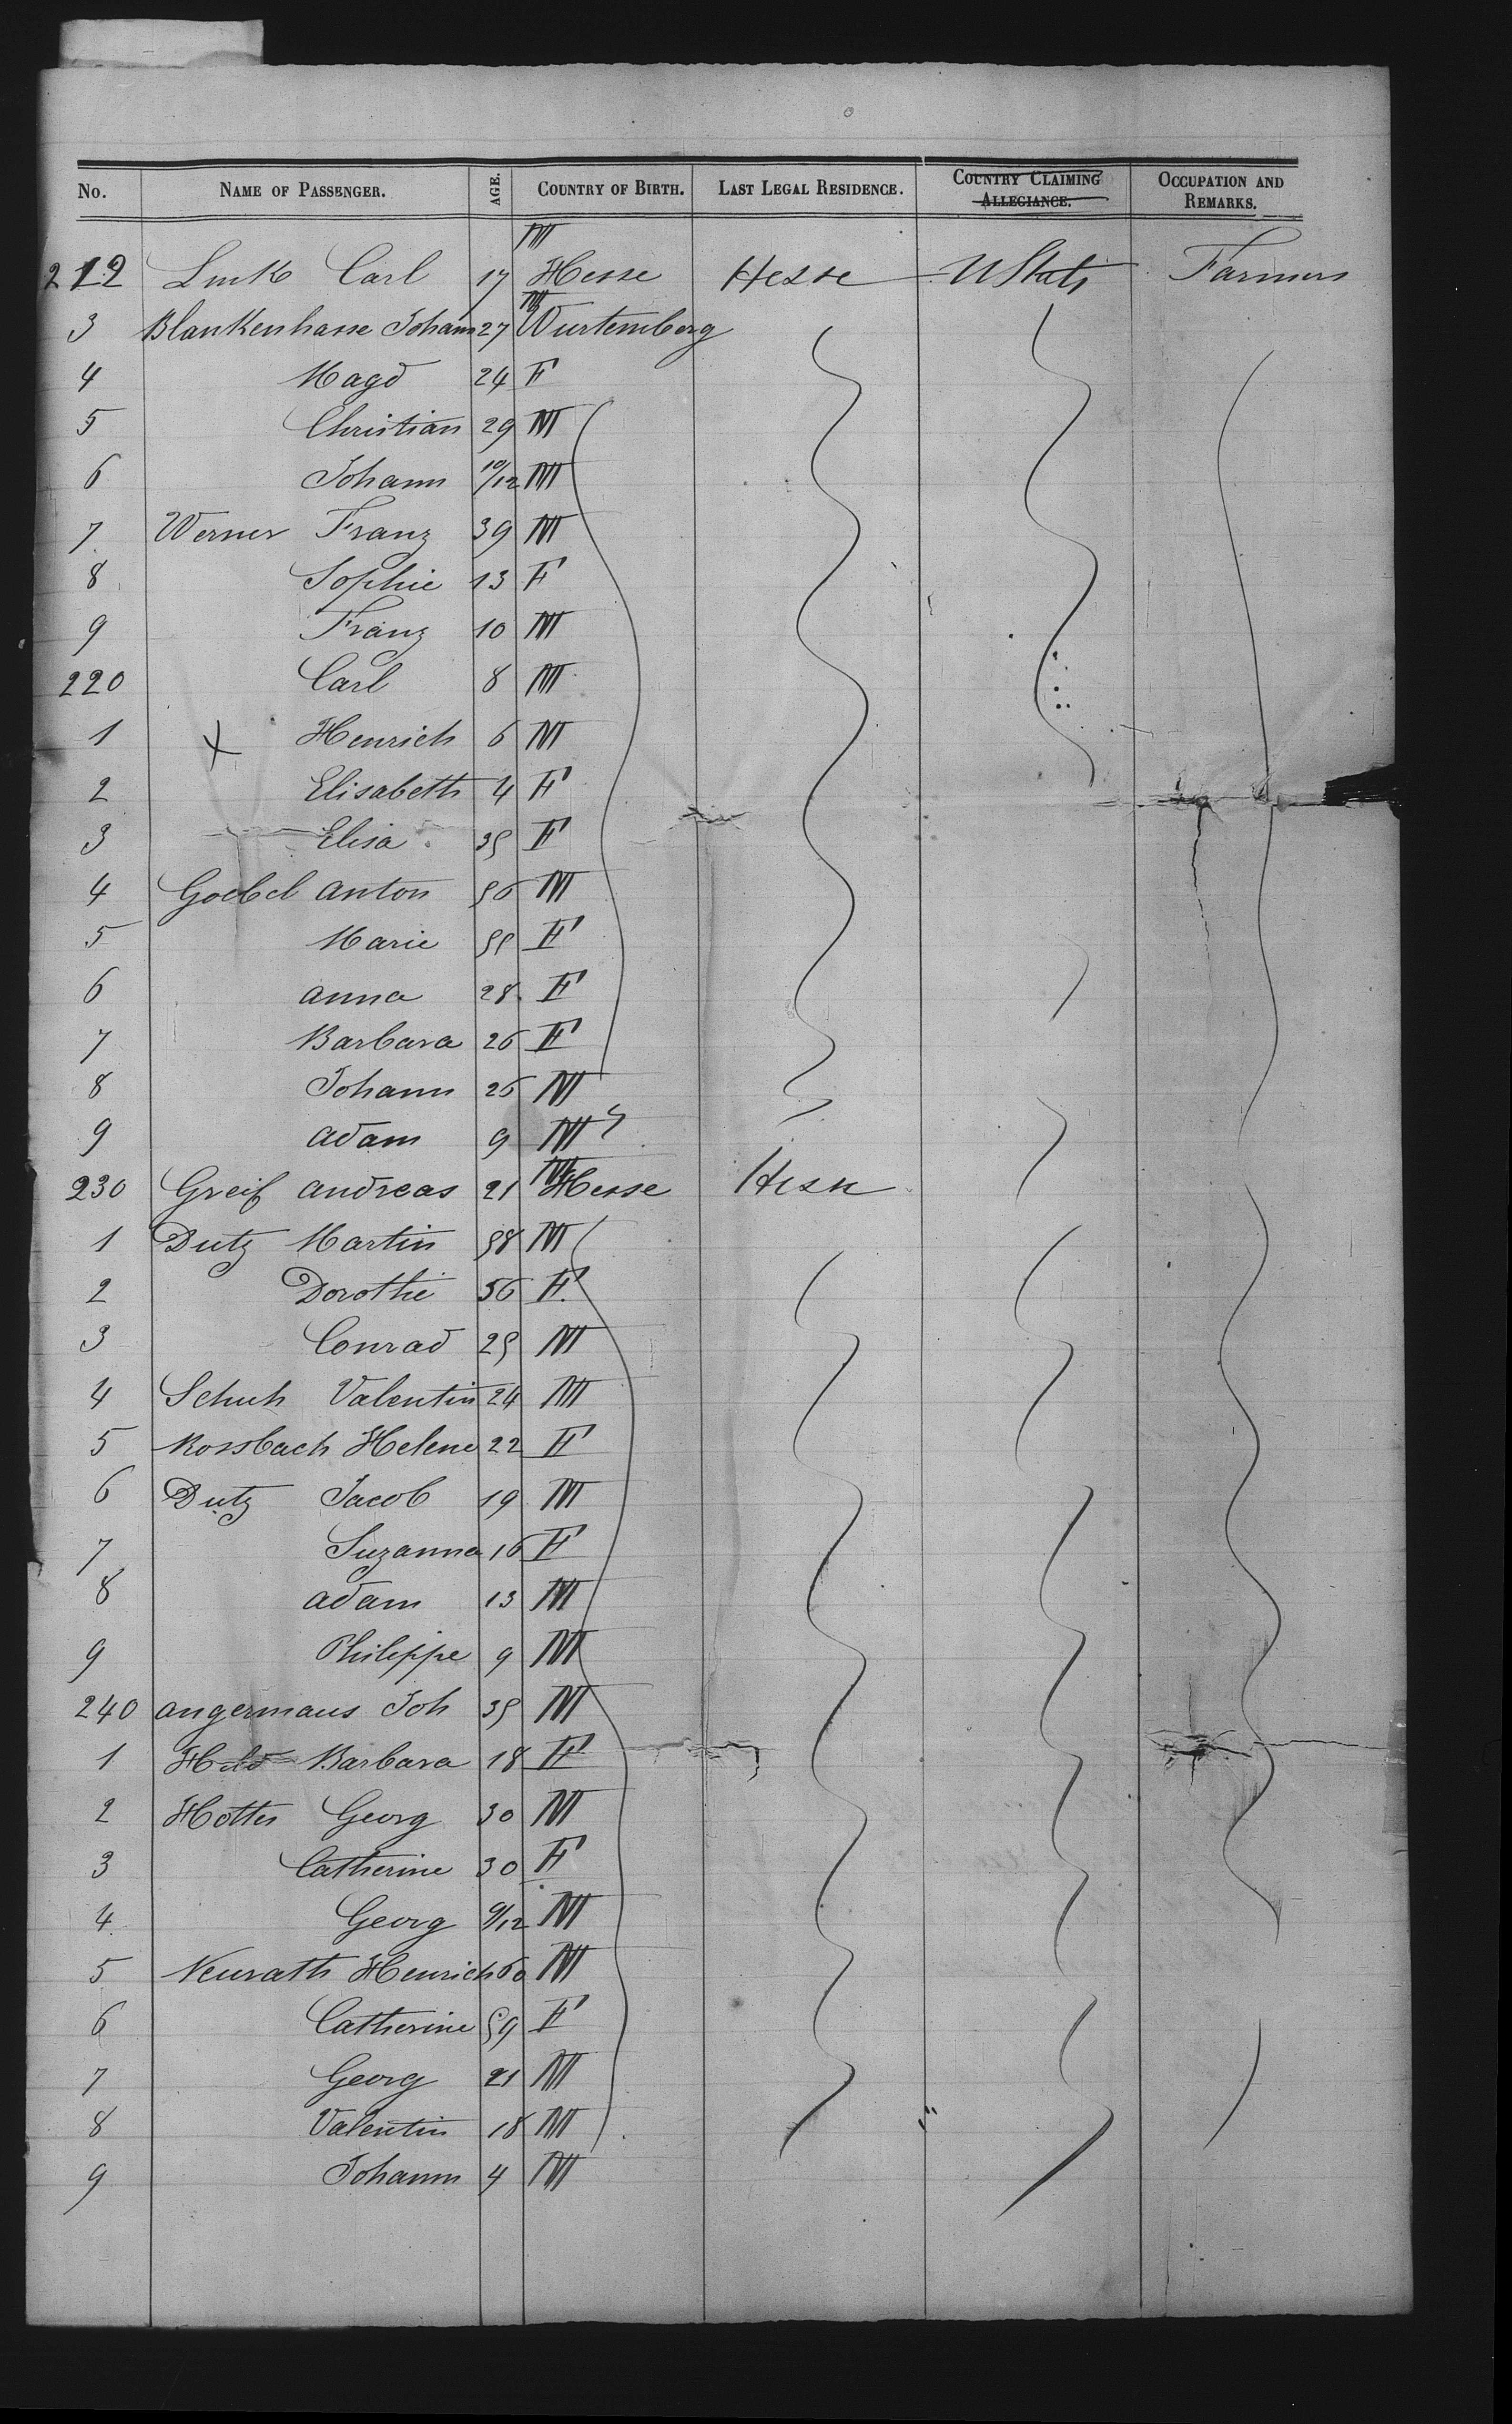 No. NAME OF PASSENGER. AGE. COUNTRY OF BIRTH. LAST LEGAL RESIDENCE. COUNTRY CLAIMING ALLEGIANCE. OCCUPATION AND REMARKS.
212 Link Carl 17 M Hesse Hesse U Stats Farmers
3 Blankenhane Johann 27 M Wurtemberg
4 Magd 24 F
5 Christian 29 M
6 Johann 10/12 M
7 Werner Franz 39 M
8 Sophie 13 F
9 Franz 10 M
220 Carl 8 M
1 X Henrich 6 M
2 Elisabeth 4 F
3 Elisa 35 F
4 Goebel Anton 56 M
5 Marie 55 F
6 Anna 28 F
7 Barbara 26 F
8 Johann 26 M
9 Adam 9 M
230 Greif Andreas 21 M Hesse Hesse
1 Dutz Martin 58 M
2 Dorothe 56 F
3 Conrad 25 M
4 Schuh Valentin 24 M
5 Rossbach Helene 22 F
6 Dutz Jacob 19 M
7 Suzanna 16 F
8 Adam 13 M
9 Philippe 9 M
240 Angermaus Joh 35 M
1 Hild Barbara 18 F
2 Hotter Georg 30 M
3 Catherine 30 F
4 Georg 9/12 M
5 Neurath Henrich 60 M
6 Catherine 59 F
7 Georg 21 M
8 Valentin 18 M
9 Johann 4 M